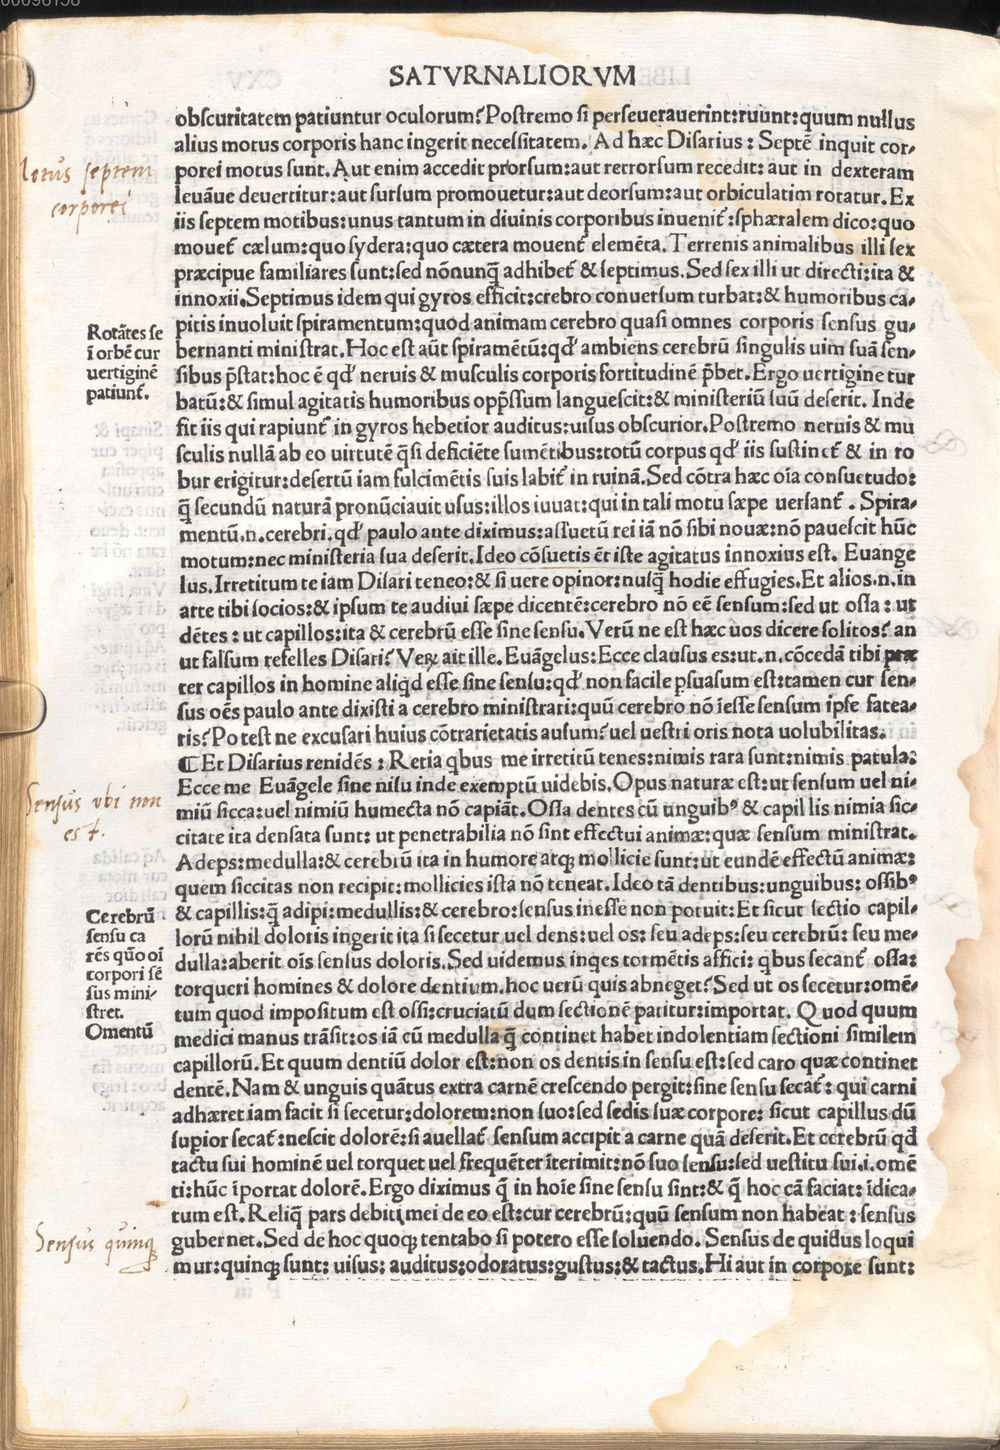 SATVRNALIORVM
obscuritatem patiuntur oculorum? Postremo si perseuerauerint: ruunt: quum nullus
alius motus corporis hanc ingerit necessitatem. Ad hæc Disarius: Septē inquit cor-
porei motus sunt. Aut enim accedit prorsum: aut retrorsum recedit: aut in dexteram
leuāue deuertitur: aut sursum promouetur: aut deorsum: aut orbiculatim rotatur. Ex
iis septem motibus: unus tantum in diuinis corporibus inuenit᷑: sphæralem dico: quo
mouet᷑ cælum: quo sydera: quo cætera mouent᷑ elemēta. Terrenis animalibus illi sex
præcipue familiares sunt: sed nōnunq̄ adhibet᷑ & septimus. Sed sex illi ut directi: ita &
innoxii. Septimus idem qui gyros efficit: crebro conuersum turbat: & humoribus ca-
pitis inuoluit spiramentum: quod animam cerebro quasi omnes corporis sensus gu-
bernanti ministrat. Hoc est aūt spiramētū: qd' ambiens cerebrū singulis uim suā sen-
sibus p̄stat: hoc ē qd' neruis & musculis corporis fortitudinē p̄bet. Ergo uertigine tur
batū: & simul agitatis humoribus opp̄ssum languescit: & ministeriū suū deserit. Inde
fit iis qui rapiunt᷑ in gyros hebetior auditus: uisus obscurior. Postremo neruis & mu
sculis nullā ab eo uirtutē q̄si deficiēte sumētibus: totū corpus qd' iis sustinet᷑ & in ro
bur erigitur: desertū iam fulcimētis suis labit᷑ in ruinā. Sed cōtra hæc oīa consuetudo:
q̄ secundū naturā pronūciauit usus: illos iuuat: qui in tali motu sæpe uersant᷑. Spira-
mentū.n. cerebri. qd' paulo ante diximus: assuetū rei iā nō sibi nouæ: nō pauescit hūc
motum: nec ministeria sua deserit. Ideo cōsuetis ēt iste agitatus innoxius est. Euange
lus. Irretitum te iam Disari teneo: & si uere opinor: nusq̄ hodie effugies. Et alios.n. in
arte tibi socios: & ipsum te audiui sæpe dicentē: cerebro nō eē sensum: sed ut ossa: ut
dētes: ut capillos: ita & cerebrū esse sine sensu. Verū ne est hæc uos dicere solitos? an
ut falsum refelles Disari? Veꝝ ait ille. Euāgelus: Ecce clausus es: ut.n. cōcedā tibi præ
ter capillos in homine aliqd esse sine sensu: qd' non facile ꝑsuasum est: tamen cur sen-
sus oēs paulo ante dixisti a cerebro ministrari: quū cerebro nō īesse sensum ipse fatea-
ris? Potest ne excusari huius cōtrarietatis ausum? uel uestri oris nota uolubilitas.
⸿ Et Disarius renidēs: Retia qbus me irretitū tenes: nimis rara sunt: nimis patula:
Ecce me Euāgele sine nisu inde exemptū uidebis. Opus naturæ est: ut sensum uel ni-
miū sicca: uel nimiū humecta nō capiāt. Ossa dentes cū unguibꝰ & capillis nimia sic-
citate ita densata sunt: ut penetrabilia nō sint effectui animæ: quæ sensum ministrat.
Adeps: medulla: & cerebrū ita in humore atqꝫ mollicie sunt: ut eundē effectū animæ:
quem siccitas non recipit: mollicies ista nō teneat. Ideo tā dentibus: unguibus: ossibꝰ
& capillis: q̄ adipi: medullis: & cerebro: sensus inesse non potuit: Et sicut sectio capil-
lorū nihil doloris ingerit ita si secetur uel dens: uel os: seu adeps: seu cerebrū: seu me-
dulla: aberit oīs sensus doloris. Sed uidemus inqes tormētis affici: qbus secant᷑ ossa:
torqueri homines & dolore dentium. hoc uerū quis abneget? Sed ut os secetur: omē-
tum quod impositum est ossi: cruciatū dum sectionē patitur: importat. Quod quum
medici manus trāsit: os iā cū medulla q̄ continet habet indolentiam sectioni similem
capillorū. Et quum dentiū dolor est: non os dentis in sensu est: sed caro quæ continet
dentē. Nam & unguis quātus extra carnē crescendo pergit: sine sensu secat᷑: qui carni
adhæret iam facit si secetur: dolorem: non suo: sed sedis suæ corpore: sicut capillus dū
supior secat᷑: nescit dolorē: si auellat᷑ sensum accipit a carne quā deserit. Et cerebrū qd
tactu sui hominē uel torquet uel frequēter īterimit: nō suo sensu: sed uestitu sui.i. omē
ti: hūc īportat dolorē. Ergo diximus q̄ in hoīe sine sensu sint: & q̄ hoc cā faciat: īdica-
tum est. Reliq̄ pars debiti mei de eo est: cur cerebrū: quū sensum non habeat: sensus
gubernet. Sed de hoc quoqꝫ tentabo si potero esse soluendo. Sensus de quibus loqui
mur: quinqꝫ sunt: uisus: auditus: odoratus: gustus: & tactus. Hi aut in corpore sunt:
Motus septem
corporei
Rotātes se
ī orbē cur
uertiginē
patiunt᷑.
Sensus vbi non
est.
Cerebrū
sensu ca
rēs quō oī
corpori sē
sus mini-
stret.
Omentū
Sensus quinqꝫ